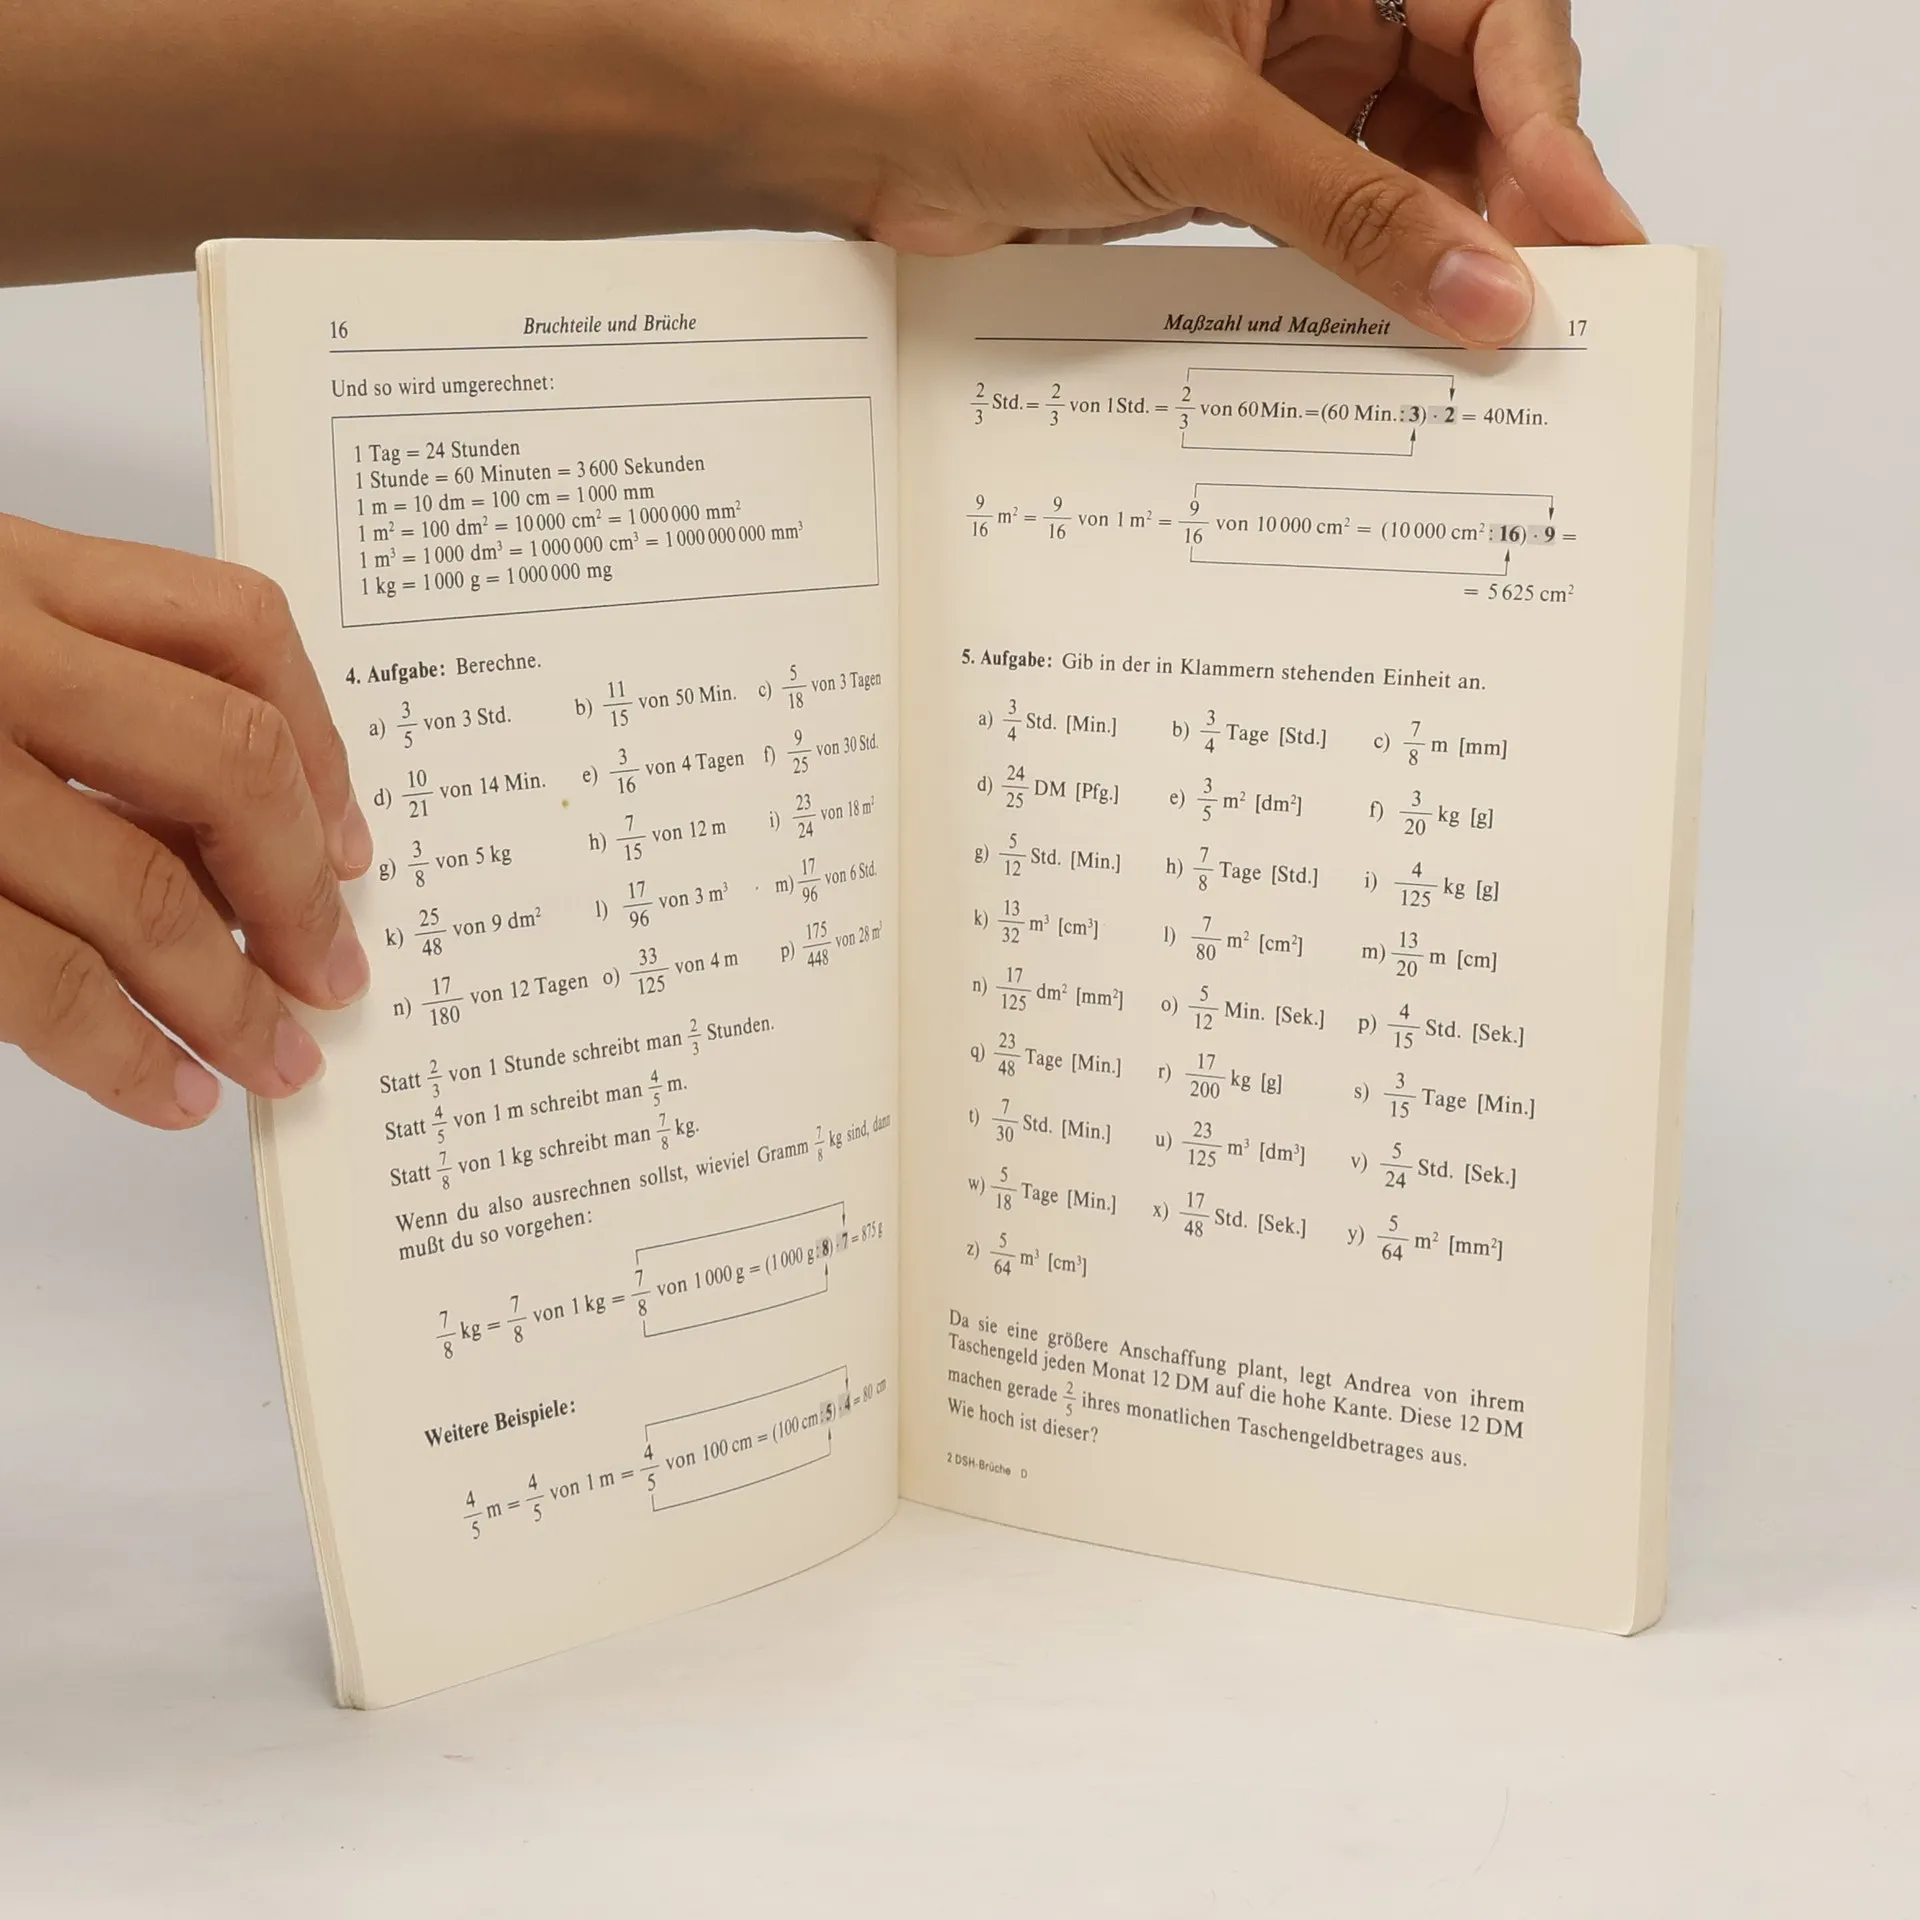 16 Bruchteile und Brüche
Und so wird umgerechnet:
1 Tag = 24 Stunden
1 Stunde = 60 Minuten = 3600 Sekunden
1 m = 10 dm = 100 cm = 1000 mm
1 m² = 100 dm² = 10000 cm² = 1000000 mm²
1 m³ = 1000 dm³ = 1000000 cm³ = 1000000000 mm³
1 kg = 1000 g = 1000000 mg
4. Aufgabe: Berechne.
a) 3/5 von 3 Std. b) 11/15 von 50 Min. c) 5/18 von 3 Tagen
d) 10/21 von 14 Min. e) 3/16 von 4 Tagen f) 9/25 von 30 Std.
g) 3/8 von 5 kg h) 7/15 von 12 m i) 23/24 von 18 m²
k) 25/48 von 9 dm² l) 17/96 von 3 m³ m) 17/96 von 6 Std.
n) 17/180 von 12 Tagen o) 33/125 von 4 m p) 175/448 von 28 m²
Statt 2/3 von 1 Stunde schreibt man 2/3 Stunden.
Statt 4/5 von 1 m schreibt man 4/5 m.
Statt 7/8 von 1 kg schreibt man 7/8 kg.
Wenn du also ausrechnen sollst, wieviel Gramm 7/8 kg sind, dann
mußt du so vorgehen:
7/8 kg = 7/8 von 1 kg = 7/8 von 1000 g = (1000 g : 8) · 7 = 875 g
Weitere Beispiele:
4/5 m = 4/5 von 1 m = 4/5 von 100 cm = (100 cm : 5) · 4 = 80 cm
Maßzahl und Maßeinheit 17
2/3 Std. = 2/3 von 1 Std. = 2/3 von 60 Min. = (60 Min. : 3) · 2 = 40 Min.
9/16 m² = 9/16 von 1 m² = 9/16 von 10000 cm² = (10000 cm² : 16) · 9 =
= 5625 cm²
5. Aufgabe: Gib in der in Klammern stehenden Einheit an.
a) 3/4 Std. [Min.] b) 3/4 Tage [Std.] c) 7/8 m [mm]
d) 24/25 DM [Pfg.] e) 3/5 m² [dm²] f) 3/20 kg [g]
g) 5/12 Std. [Min.] h) 7/8 Tage [Std.] i) 4/125 kg [g]
k) 13/32 m³ [cm³] l) 7/80 m² [cm²] m) 13/20 m [cm]
n) 17/125 dm² [mm²] o) 5/12 Min. [Sek.] p) 4/15 Std. [Sek.]
q) 23/48 Tage [Min.] r) 17/200 kg [g] s) 3/15 Tage [Min.]
t) 7/30 Std. [Min.] u) 23/125 m³ [dm³] v) 5/24 Std. [Sek.]
w) 5/18 Tage [Min.] x) 17/48 Std. [Sek.] y) 5/64 m² [mm²]
z) 5/64 m³ [cm³]
Da sie eine größere Anschaffung plant, legt Andrea von ihrem
Taschengeld jeden Monat 12 DM auf die hohe Kante. Diese 12 DM
machen gerade 2/5 ihres monatlichen Taschengeldbetrages aus.
Wie hoch ist dieser?
2 DSH-Brüche D